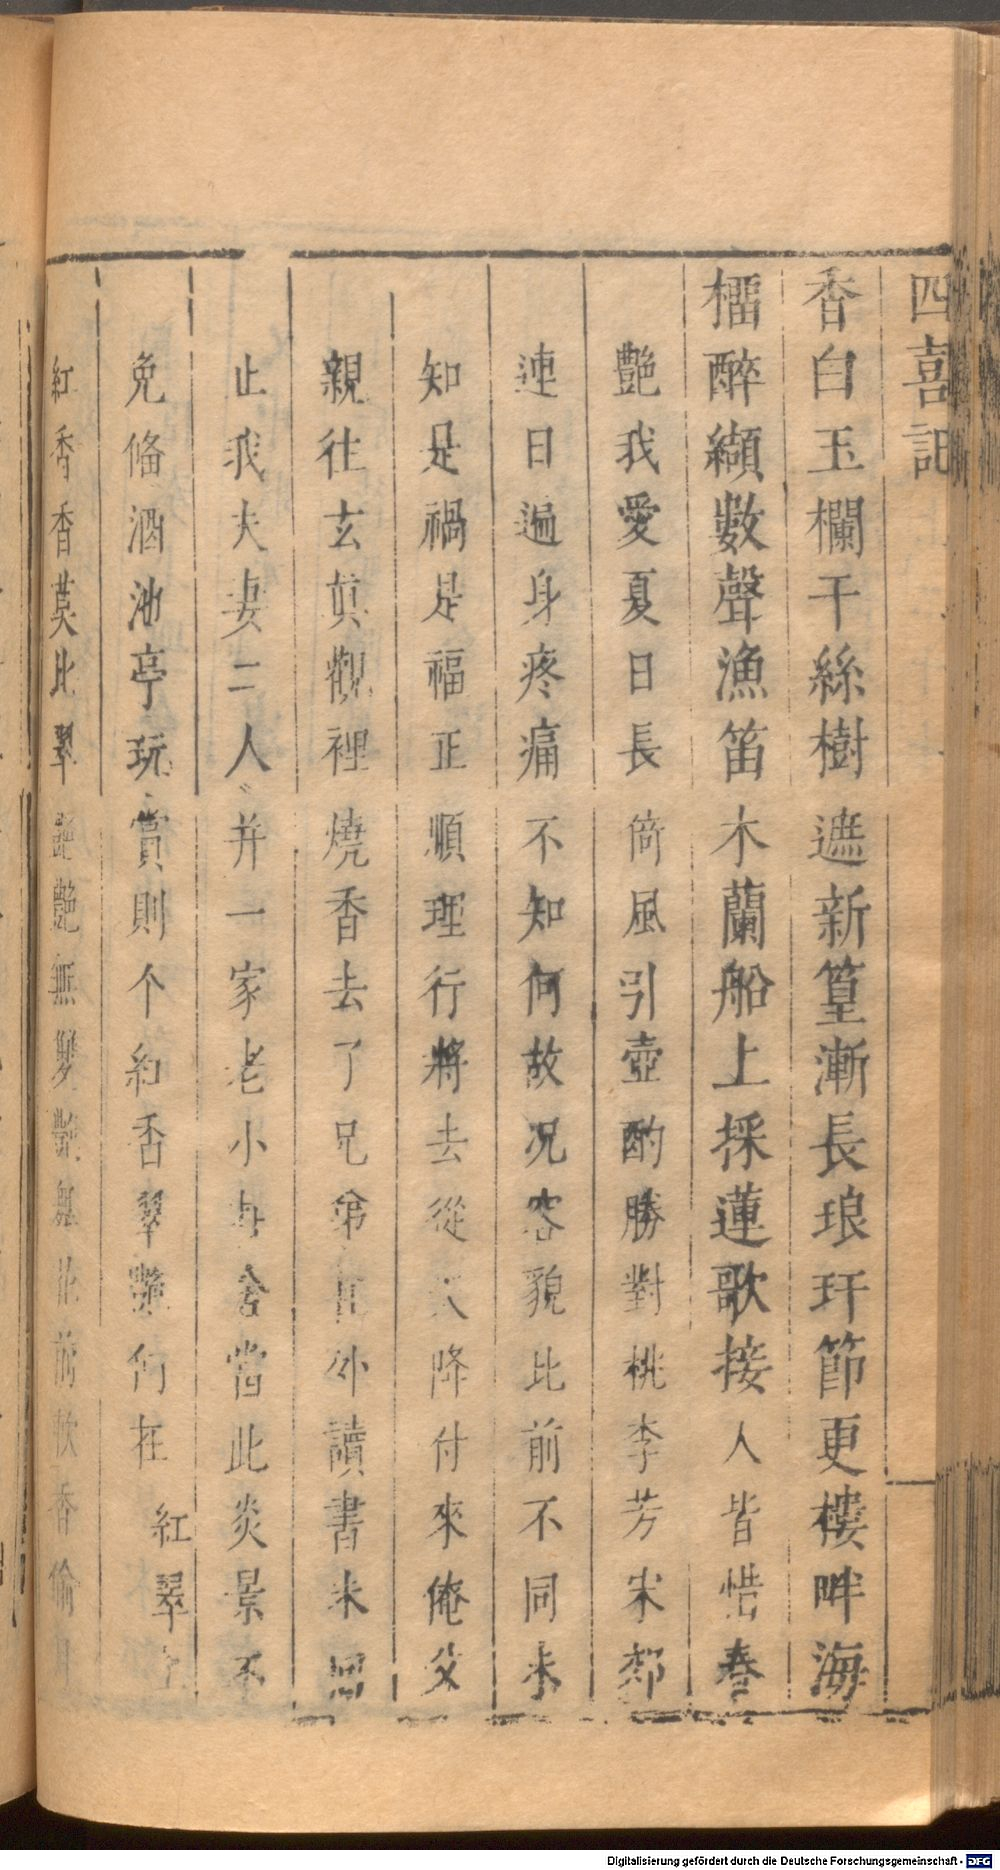 四喜記
香白玉欄干絲樹遮新篁漸長琅玕節更樓畔海
榴醉纈數聲漁笛木蘭船上採蓮歌接人皆惜春
艷我愛夏日長倚風引壺酌勝對桃李芳宋郊
連日遍身疼痛不知何故况容貌比前不同未
知是禍是福正順理行將去從天降付來俺父
親往玄眞觀裡燒香去了兄弟在外讀書未回
止我夫妻二人并一家老小在舍當此炎景不
免俻酒池亭玩賞則个紅香翠艷何在紅翠
紅香香莫比翠艷艷無雙艷無花前軟香偷月
Digitalisierung gefördert durch die Deutsche Forschungsgemeinschaft - DFG